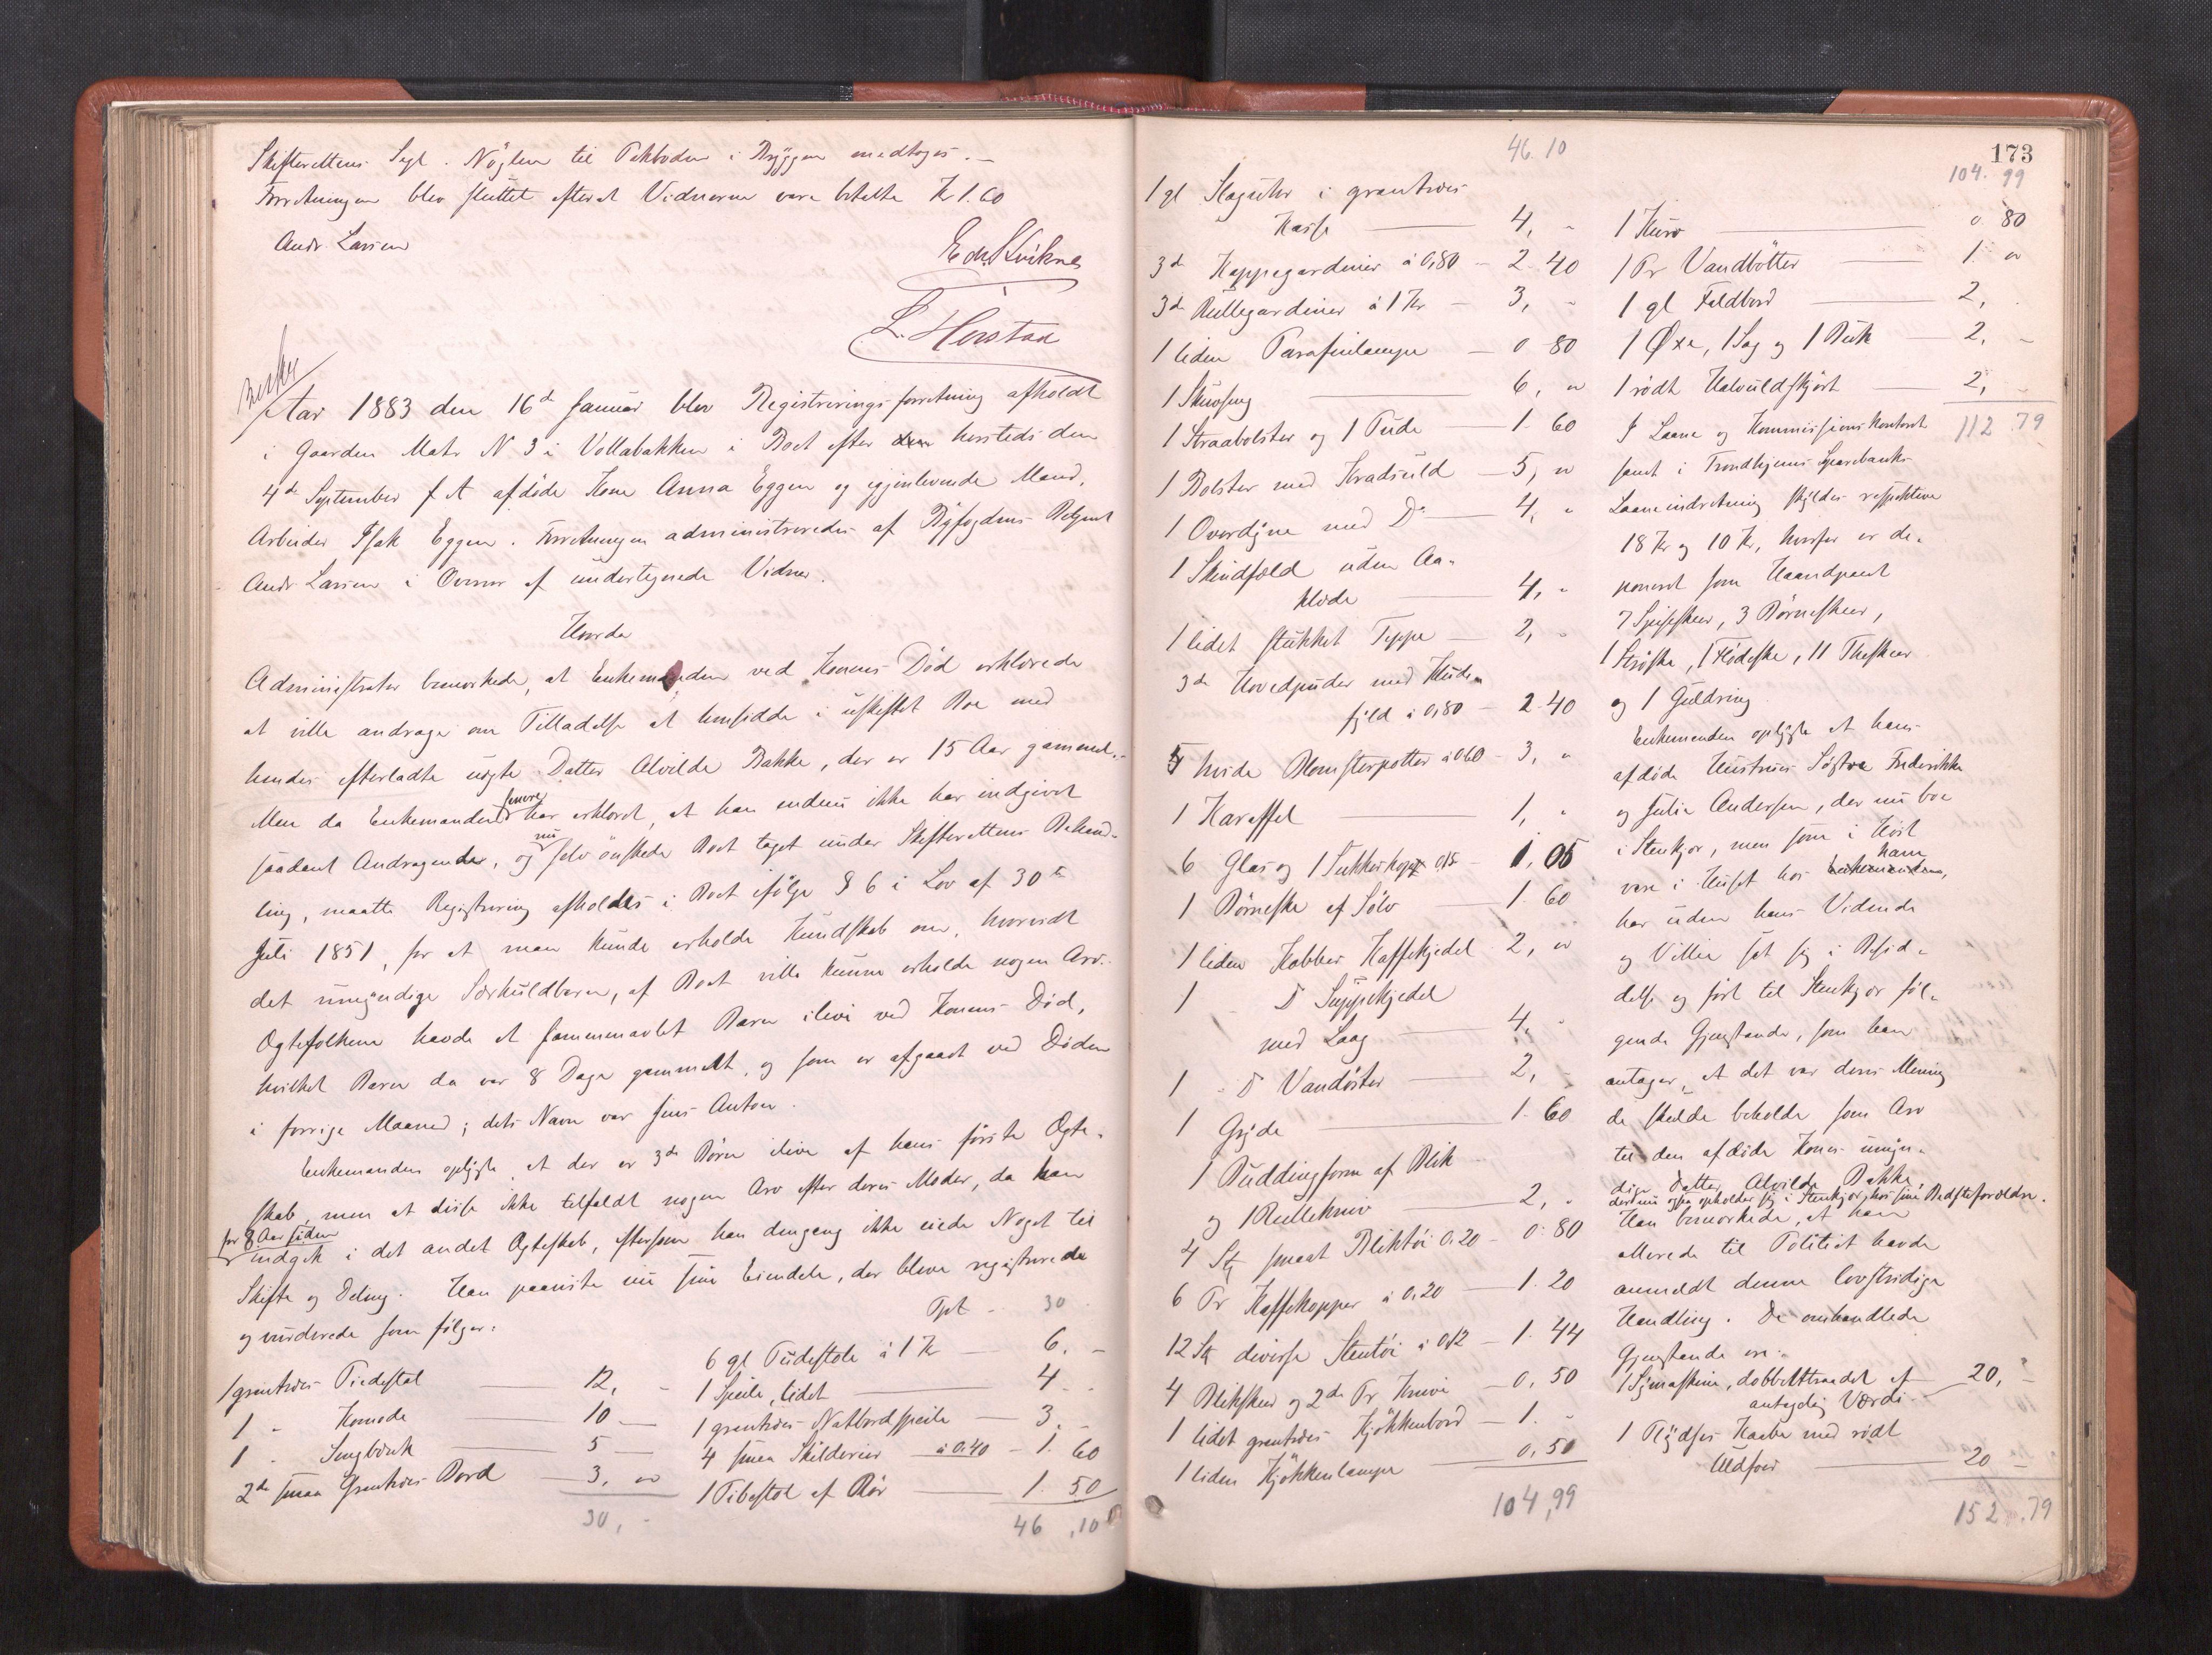 Skifterettens Segl. Nøglen til Pakboden i Bryggen medtoges.
Forretningen blev sluttet efterat Vidnerne vare betalte Kr 1.60
Andr. Larsen
Edv. Sviknes
L. Herstad
Aar 1883 den 16de Januar blev Registreringsforretning afholdt
i Gaarden Matr N 3 i Vollabakken i Boet efter den hersteds den
4de September f A afdøde Kone Anna Eggen og igjenlevende Mand,
Arbeider Isak Eggen. Forretningen administreredes af Byfogdens Betjent
Andr Larsen i Overvær af undertegnede Vidner.
Hvorda
Administrator bemærkede, at Enkemanden ved Konens Død erklærede
at ville andrage om Tilladelse at hensidde i uskiftet Boe med
hendes efterladte uægte Datter Alvilde Bakke, der er 15 Aar gammel.
Men da Enkemanden senere har erklæret, at han endnu ikke har indgivet
saadant Andragende, og nu selv ønskede Boet taget under Skifterettens Behand-
ling, maatte Registrering afholdes i Boet ifølge § 6 i Lov af 30te
Juli 1851, for at man kunde erholde Kundskab om, hvorvidt
det umyndige Særkuldbarn, af Boet ville kunne erholde nogen Arv.
Ægtefolkene havde et sammenavlet Barn ilive ved Konens Død,
hvilket Barn da var 8 Dage gammelt, og som er afgaaet ved Døden
i forrige Maaned; dets Navn var Jens Anton.
Enkemanden oplyste, at der er 3de Børn ilive af hans første Ægte-
skab, men at disse ikke tilfaldt nogen Arv efter deres Moder, da han
for 8 Aar siden
indgik i det andet Ægteskab, eftersom han dengang ikke eiede Noget til
Skifte og Deling. Han paaviste nu sine Eiendele, der bleve registrerede
og vurderede som følger:
1 grantræs Piedestal 12, -
1 - Komode 10 -
1 - Sengbænk 5 -
2de smaa Grantræs Bord 3, "
30, -
Tpt - 30
6 gl Pudestole à 1 Kr 6, -
1 Speile, lidet 4 -
1 grantræs Natbordspeile 3 -
4 smaa Skilderier à 0.40 1. 60
1 Pibestol af Rør 1. 50
46,10
46.10
1 gl Slaguhr i grantræs
Kasse 4, -
3de Kappegardiner à 0,80 2.40
3de Rullegardiner à 1 Kr 3, -
1 liden Parafinlampe 0 80
1 Skuvseng 6, "
1 Straabolster og 1 Pude 1. 60
1 Bolster med Kraduld 5, "
1 Overdyne med Do 4, "
1 Skindfæld uden Aa-
klæde 4, -
1 lidet stukket Teppe 2, -
3de Hovedpuder med Hude-
fyld à 0,80 2.40
5 hvide Blomsterpotter à 0.60 3, "
1 Karaffel 1, "
6 Glas og 1 Sukkerkop 0.15 1. 05
1 Børneske af Sølv 1. 60
1 liden Kobber Kaffekjedel 2, "
1 - Do Suppekjedel
med Laag 4, -
1 - Do Vandøster 2, -
1 Gryde 1. 60
1 Puddingform af Blik
og 1 Rullekniv 2, -
4 St smaat Bliktøi 0.20 0. 80
6 Pr Kaffekopper à 0.20 1. 20
12 St diverse Stentøi à 0.12 1. 44
4 Blikskeer og 2de Pr Knive 0, 50
1 lidet grantræs Kjøkkenbord 1. -
1 liden Kjøkkenlampe 0,50
104,99
173
104. 99
1 Kurv 0. 80
1 Pr Vandbøtter 1. "
1 gl Foldbord 2, -
1 Øxe, 1 Sag og 1 Buk 2, -
1 rødt Halvuldskjørt 2, -
112.79
I Laane og Kommissions Kontoret
samt i Trondhjems Sparebanks
Laaneindretning skyldes respektive
18 Kr og 10 Kr, hvorfor er de-
poneret som Haandpant
7 Spiseskeer, 3 Børneskeer,
1 Strøske, 1 Flødeske, 11 Theskeer
og 1 Guldring
Enkemanden oplyste at hans
afdøde Hustrues Søstre Frederikke
og Julie Andersen, der nu boe
i Stenkjær, men som i Høst
vare i Huset hos ham
har uden hans Vidende
og Villie sat sig i Besid-
delse og ført til Stenkjær føl-
gende Gjenstande, som han
antager, at det var deres Mening
de skulde beholde som Arv
til den afdøde Kones umyn-
dige Datter Alvilde Bakke,
der nu ogsaa opholder sig i Stenkjær hos sine Bedsteforældre.
Han bemærkede, at han
allerede til Politiet havde
anmeldt denne lovstridige
Handling. De omhandlede
Gjenstande ere:
1 Symaskine, dobbelttraadet af
antagelig Værdi 20, -
1 Plydses Kaabe med rødt
Uldfoer 20 -
152.79